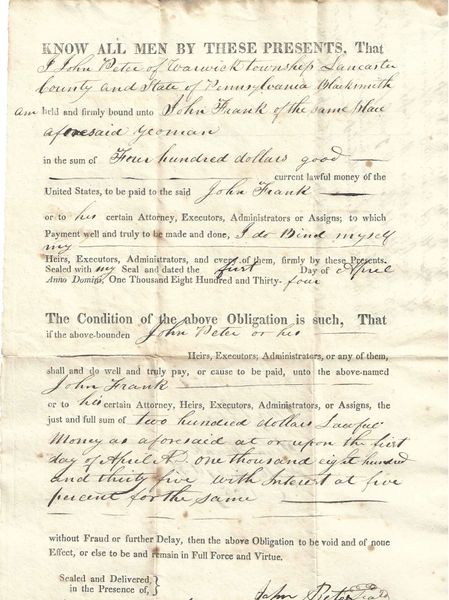 KNOW ALL MEN BY THESE PRESENTS, That
I John Peter of Warwick township Lancaster
County and State of Pennsylvania Blacksmith
am held and firmly bound unto John Frank of the same place
aforesaid yeoman
in the sum of Four hundred dollars good
current lawful money of the
United States, to be paid to the said John Frank
or to his certain Attorney, Executors, Administrators or Assigns; to which
Payment well and truly to be made and done, I do Bind myself
my
Heirs, Executors, Administrators, and every of them, firmly by these Presents.
Sealed with my Seal and dated the first Day of April
Anno Domini, One Thousand Eight Hundred and Thirty-four
The Condition of the above Obligation is such, That
if the above-bounden John Peter or his
Heirs, Executors, Administrators, or any of them,
shall and do well and truly pay, or cause to be paid, unto the above-named
John Frank
or to his certain Attorney, Heirs, Executors, Administrators, or Assigns, the
just and full sum of two hundred dollars Lawful
Money as aforesaid at or upon the first
day of April A.D. one thousand eight hundred
and thirty five with Interest at five
percent for the same
without Fraud or further Delay, then the above Obligation to be void and of none
Effect, or else to be and remain in Full Force and Virtue.
Sealed and Delivered,
in the Presence of,
John Peter